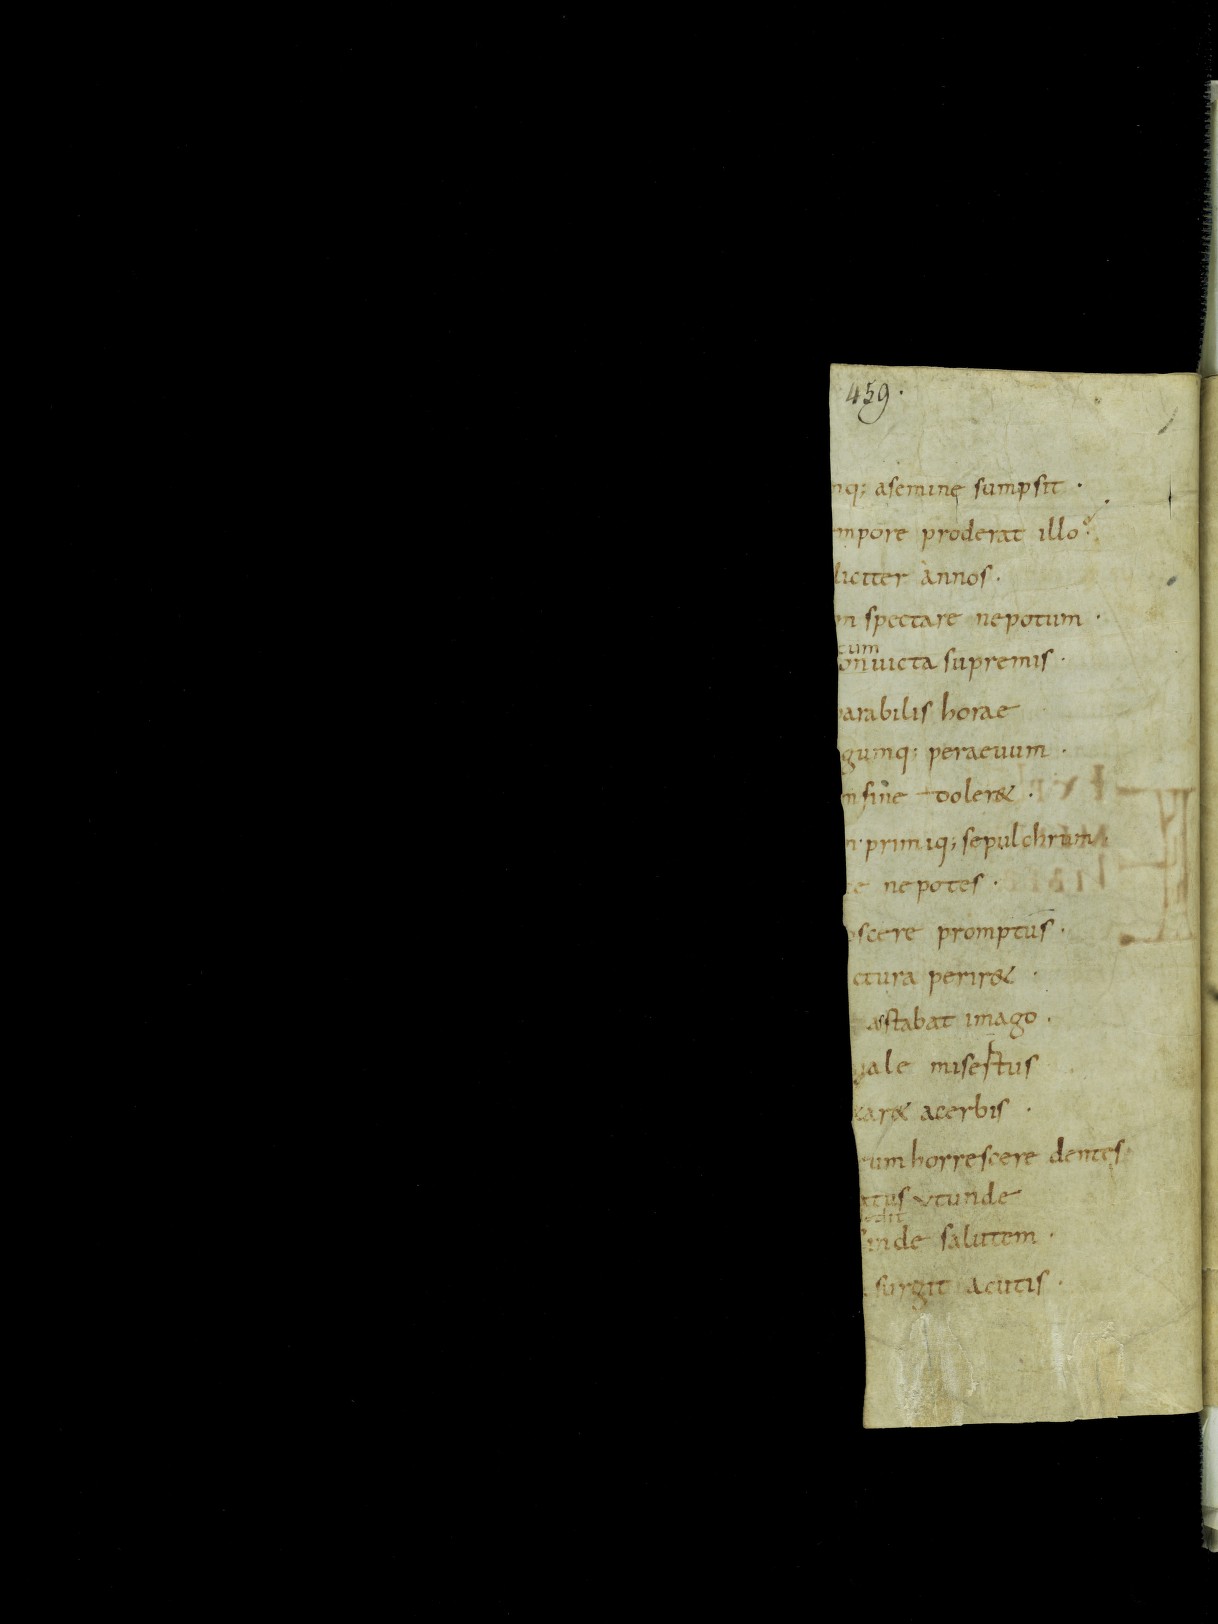 459.
nq; a semine sumpsit ·
mpore proderat illo
liciter annos ·
m spectare nepotum ·
tum
onuicta supremis ·
parabilis horae
gumq; peraeuum ·
n sine doler& ·
primiq; sepulchrum
e nepotes ·
oscere promptus ·
ctura perir& ·
astabat imago ·
gale
ar& acerbis ·
tum horrescere dentes
atus
inde salutem ·
surgit acutis ·